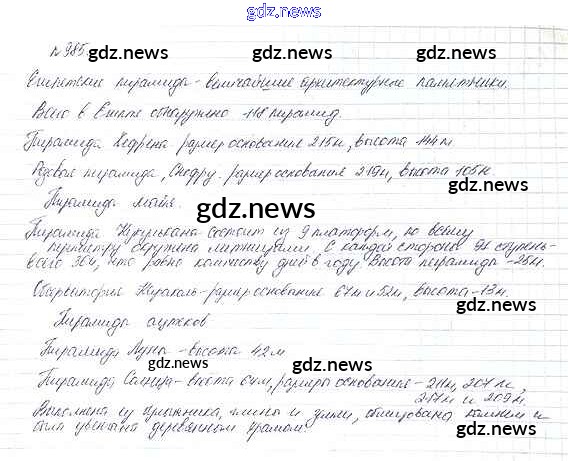 gdz.news
№985.
gdz.news gdz.news gdz.news
Египетские пирамиды - величайшие архитектурные памятники.
Всего в Египте обнаружено 118 пирамид.
gdz.news gdz.news
Пирамида Хефрена размер основания 215м, высота 144м
Розовая пирамида, Снофру. размер основания 219м, высота 105м.
gdz.news
Пирамида майя.
gdz.news
Пирамида Кукулькана состоит из 9 платформ, по всему
периметру окружена лестницами. С каждой стороны 91 ступень-
всего 364, что равно количеству дней в году. Высота пирамиды -25м.
Обсерватория Караколь-размер основания 67м и 52м, высота-13м.
gdz.news
Пирамиды ацтеков
gdz.news
Пирамида Луны - высота 42м
gdz.news gdz.news
Пирамида Солнца- высота 64м, размеры основания - 211м, 207м,
217м и 209м.
Выполнена из глины и облицована камнем и
была увенчана деревянным храмом.
gdz.news
gdz.news